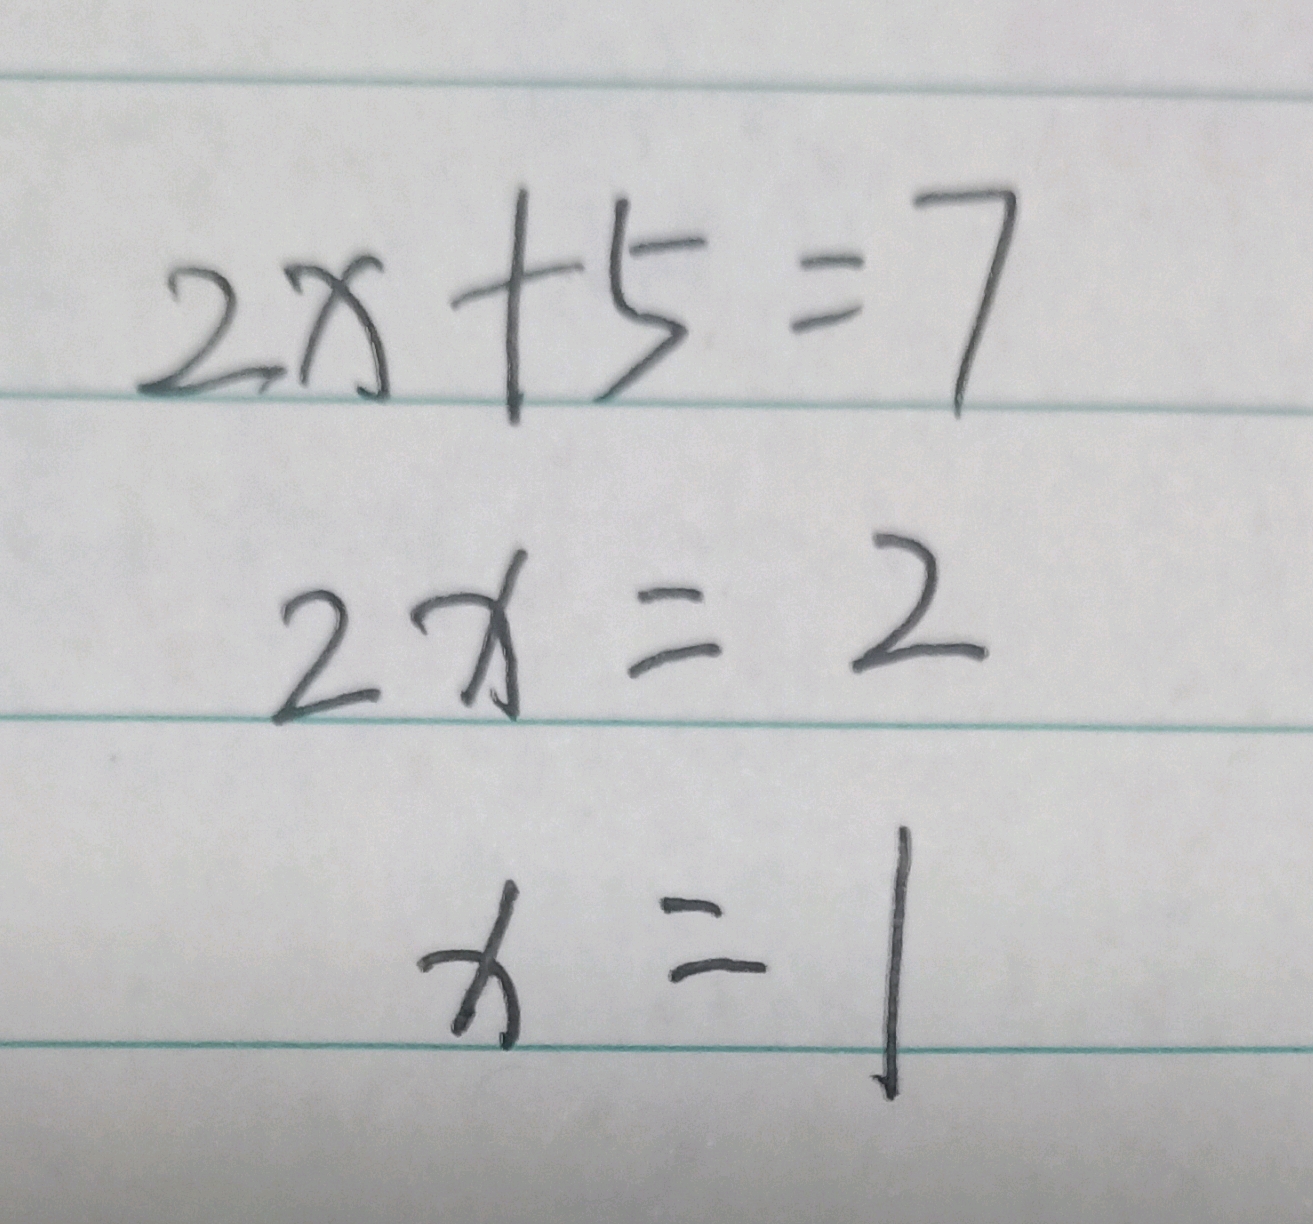 2x + 5 = 7
2x = 2
x = 1